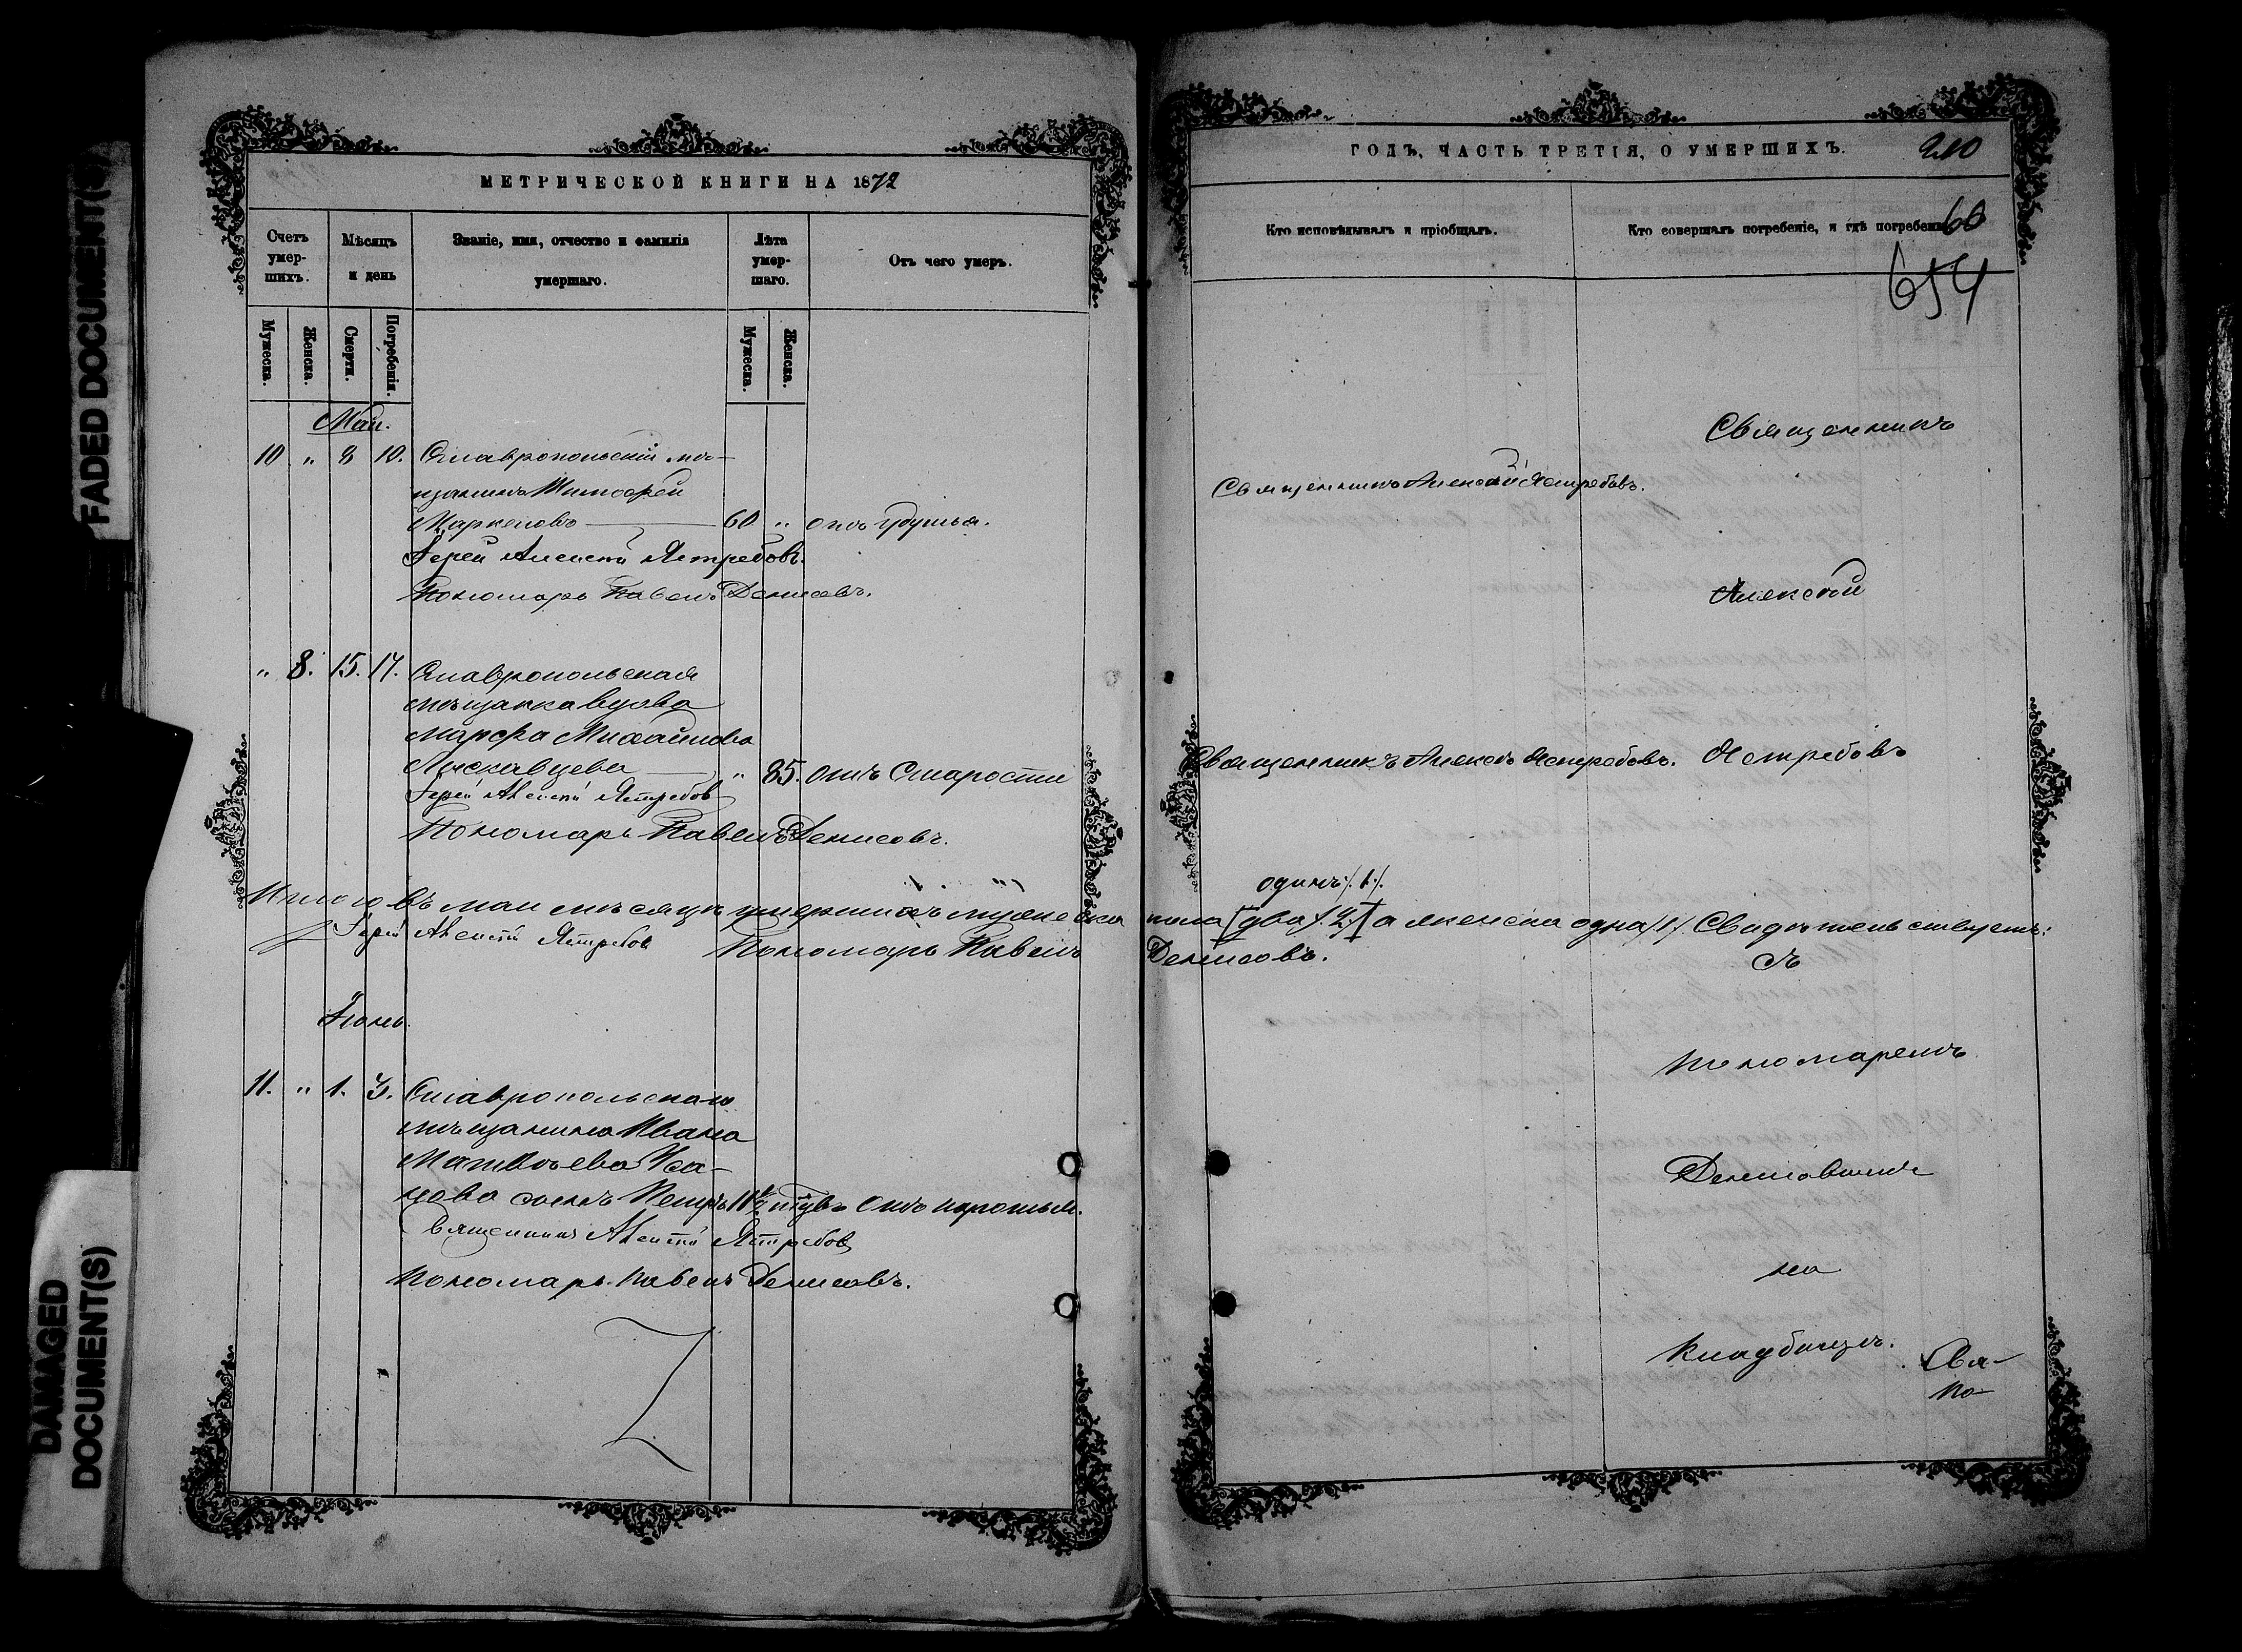 FADED DOCUMENT(S)
DAMAGED
DOCUMENT(S)
МЕТРИЧЕСКОЙ КНИГИ НА 1872
Счетъ умер-шихъ.
Мѣсяцъ и день
Званіе, имя, отчество и фамилія умершаго.
Лѣта умер-шаго.
Отъ чего умеръ.
Мужеска.
Женска.
Смерти.
Погребенія.
Мужеска.
Женска.
Май.
10 " 8 10. Ставропольскій мѣ-
щанинъ Тимофей
Маркеловъ 60 " отъ удушья.
Іерей Алексѣй Ястребовъ.
Пономарь Павелъ Денисовъ.
" 8. 15. 17. Ставропольская
мѣщанка вдова
Марфа Михайлова
" 85. отъ Старости
Іерей Алексѣй Ястребов
Пономарь Павелъ Денисовъ.
Итого въ маи мѣсяцѣ умершихъ мужеска
Іерей Алексѣй Ястребов Пономарь Павелъ
Іюнь.
11. " 1. 3. Ставропольскаго
мѣщанина Ивана
Матвѣева
сынъ Петръ
Священникъ Алексѣй Ястребов
Пономарь Павелъ Денисовъ.
ГОДЪ, ЧАСТЬ ТРЕТІЯ, О УМЕРШИХЪ.
210
Кто исповѣдывалъ и пріобщалъ.
Кто совершалъ погребеніе, и гдѣ погребены
60
654
Священникъ
Священникъ Алексѣй Ястребовъ.
Алексѣй
Священникъ Алексѣй Ястребовъ. Ястребовъ
одинъ /.1./.
пола [два /.2./.] а женска одна /.1./. Свидѣтельствуетъ:
Денисовъ.
съ
пономаремъ
Денисовымъ
на
кладбищѣ.
Свя-
По-